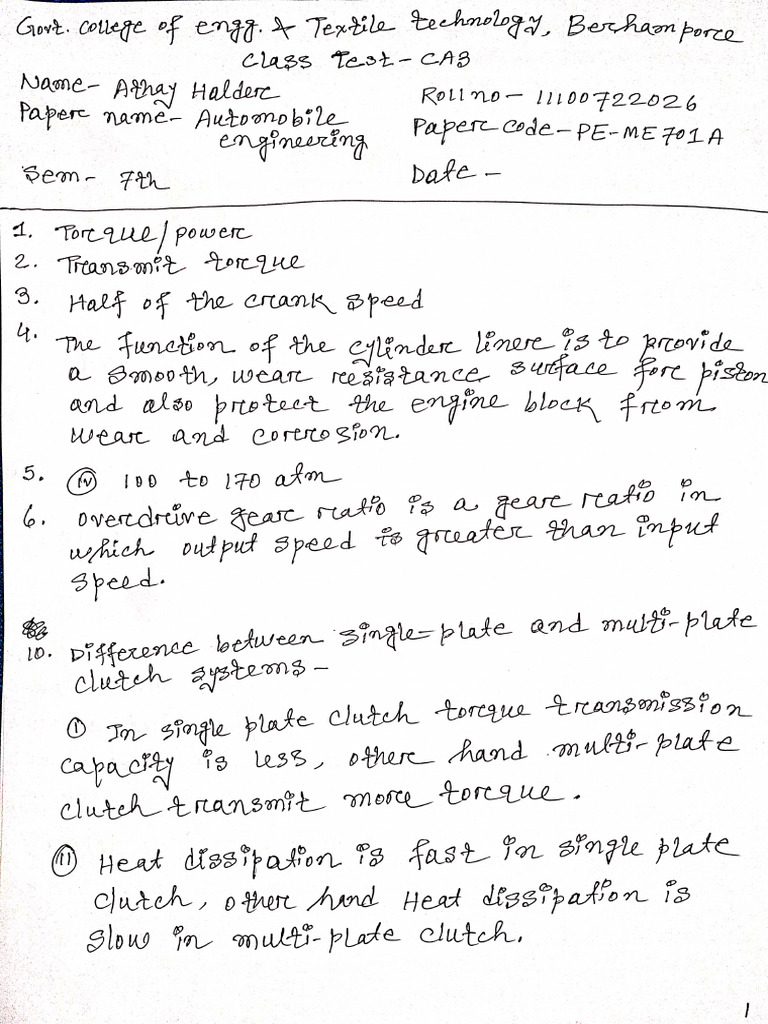 Govt. college of engg. & Textile technology, Berhampore
Class Test - CA3
Name - Athay Halder
Roll no - 11100722026
Paper name - Automobile
engineering
Paper code - PE-ME701A
Sem - 7th
Date -
1. Torque/power
2. Transmit torque
3. Half of the crank speed
4. The function of the cylinder liner is to provide
a smooth, wear resistance surface for piston
and also protect the engine block from
wear and corrosion.
5. (iv) 100 to 170 atm
6. overdrive gear ratio is a gear ratio in
which output speed is greater than input
speed.
10. Difference between single-plate and multi-plate
clutch systems -
(i) In single plate clutch torque transmission
capacity is less, other hand multi-plate
clutch transmit more torque.
(ii) Heat dissipation is fast in single plate
clutch, other hand Heat dissipation is
slow in multi-plate clutch.
1